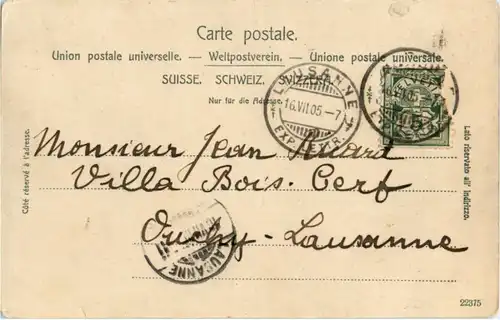 Carte postale.
Union postale universelle. — Weltpostverein. — Unione postale universale.
SUISSE. SCHWEIZ. SVIZZERA.
Nur für die Adresse.
LAUSANNE
16.VII.05 — 7
EXP. LETTR.
Côté réservé à l'adresse.
Lato riservato all' indirizzo.
Monsieur Jean Huard
Villa Bois-Cerf
Ouchy-Lausanne
LAUSANNE
22375